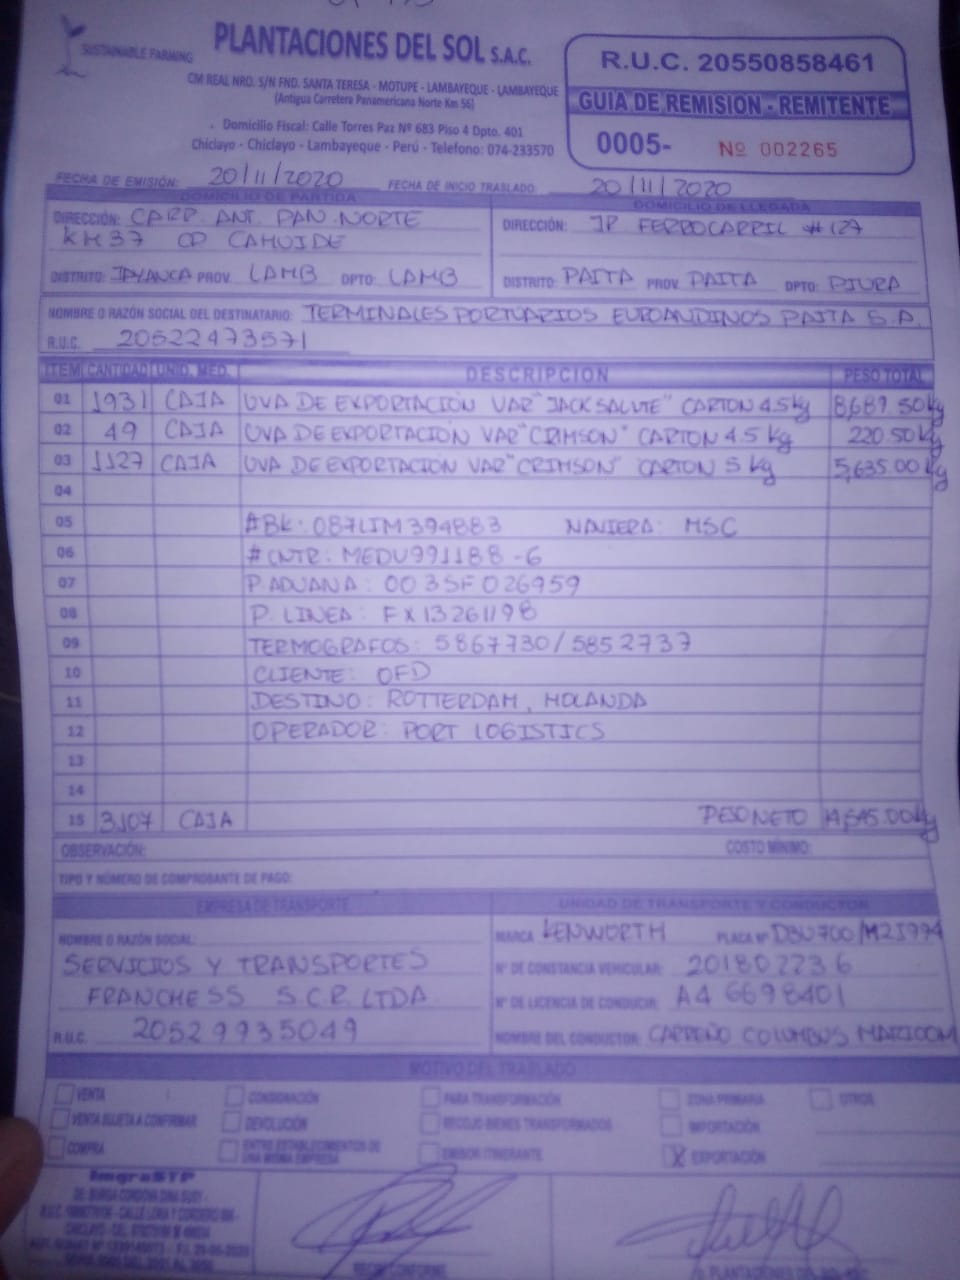 SUSTAINABLE FARMING
PLANTACIONES DEL SOL S.A.C.
CM REAL NRO. S/N FND. SANTA TERESA - MOTUPE - LAMBAYEQUE - LAMBAYEQUE
(Antigua Carretera Panamericana Norte Km 56)
Domicilio Fiscal: Calle Torres Paz Nº 683 Piso 4 Dpto. 401
Chiclayo - Chiclayo - Lambayeque - Perú - Telefono: 074-233570
R.U.C. 20550858461
GUIA DE REMISION - REMITENTE
0005- Nº 002265
FECHA DE EMISIÓN: 20/11/2020 FECHA DE INICIO TRASLADO: 20/11/2020
DOMICILIO DE PARTIDA
DIRECCIÓN: CARR. ANT. PAN. NORTE
KM37 CP CAHUIDE
DISTRITO: JAYANCA PROV. LAMB DPTO: LAMB
DOMICILIO DE LLEGADA
DIRECCIÓN: JR FERROCARRIL #127
DISTRITO: PAITA PROV. PAITA DPTO: PIURA
NOMBRE O RAZÓN SOCIAL DEL DESTINATARIO: TERMINALES PORTUARIOS EUROANDINOS PAITA S.A.
R.U.C. 20522473571
ITEM CANTIDAD UNID. MED. DESCRIPCION PESO TOTAL
01 1931 CAJA UVA DE EXPORTACIÓN VAR "JACK SALUTE" CARTON 4.5 kg 8,689.50 kg
02 49 CAJA UVA DE EXPORTACIÓN VAR "CRIMSON" CARTON 4.5 kg 220.50 kg
03 1127 CAJA UVA DE EXPORTACIÓN VAR "CRIMSON" CARTON 5 kg 5,635.00 kg
04
05 #BK: 087LIM394883 NAVIERA: MSC
06 #CNTR: MEDU991188-6
07 P. ADUANA: 0035F026959
08 P. LINEA: FX13261198
09 TERMOGRAFOS: 5867730/5852737
10 CLIENTE: OFD
11 DESTINO: ROTTERDAM, HOLANDA
12 OPERADOR: PORT LOGISTICS
13
14
15 3107 CAJA PESO NETO 14,545.00 kg
OBSERVACIÓN: COSTO MÍNIMO:
TIPO Y NÚMERO DE COMPROBANTE DE PAGO:
EMPRESA DE TRANSPORTE
NOMBRE O RAZÓN SOCIAL:
SERVICIOS Y TRANSPORTES
FRANCHESS S.C.R. LTDA
R.U.C. 20529935049
UNIDAD DE TRANSPORTE Y CONDUCTOR
MARCA KENWORTH PLACA Nº D8U700/M2I994
Nº DE CONSTANCIA VEHICULAR: 201802236
Nº DE LICENCIA DE CONDUCIR: A4 6698401
NOMBRE DEL CONDUCTOR: CARREÑO COLUMBUS
MOTIVO DEL TRASLADO
VENTA CONSIGNACIÓN PARA TRANSFORMACIÓN ZONA PRIMARIA OTROS
VENTA SUJETA A CONFIRMAR DEVOLUCIÓN RECOJO BIENES TRANSFORMADOS IMPORTACIÓN
COMPRA ENTRE ESTABLECIMIENTOS DE UNA MISMA EMPRESA EMISOR ITINERANTE X EXPORTACIÓN
ImgraSTP
RECIBI CONFORME
p. PLANTACIONES DEL SOL